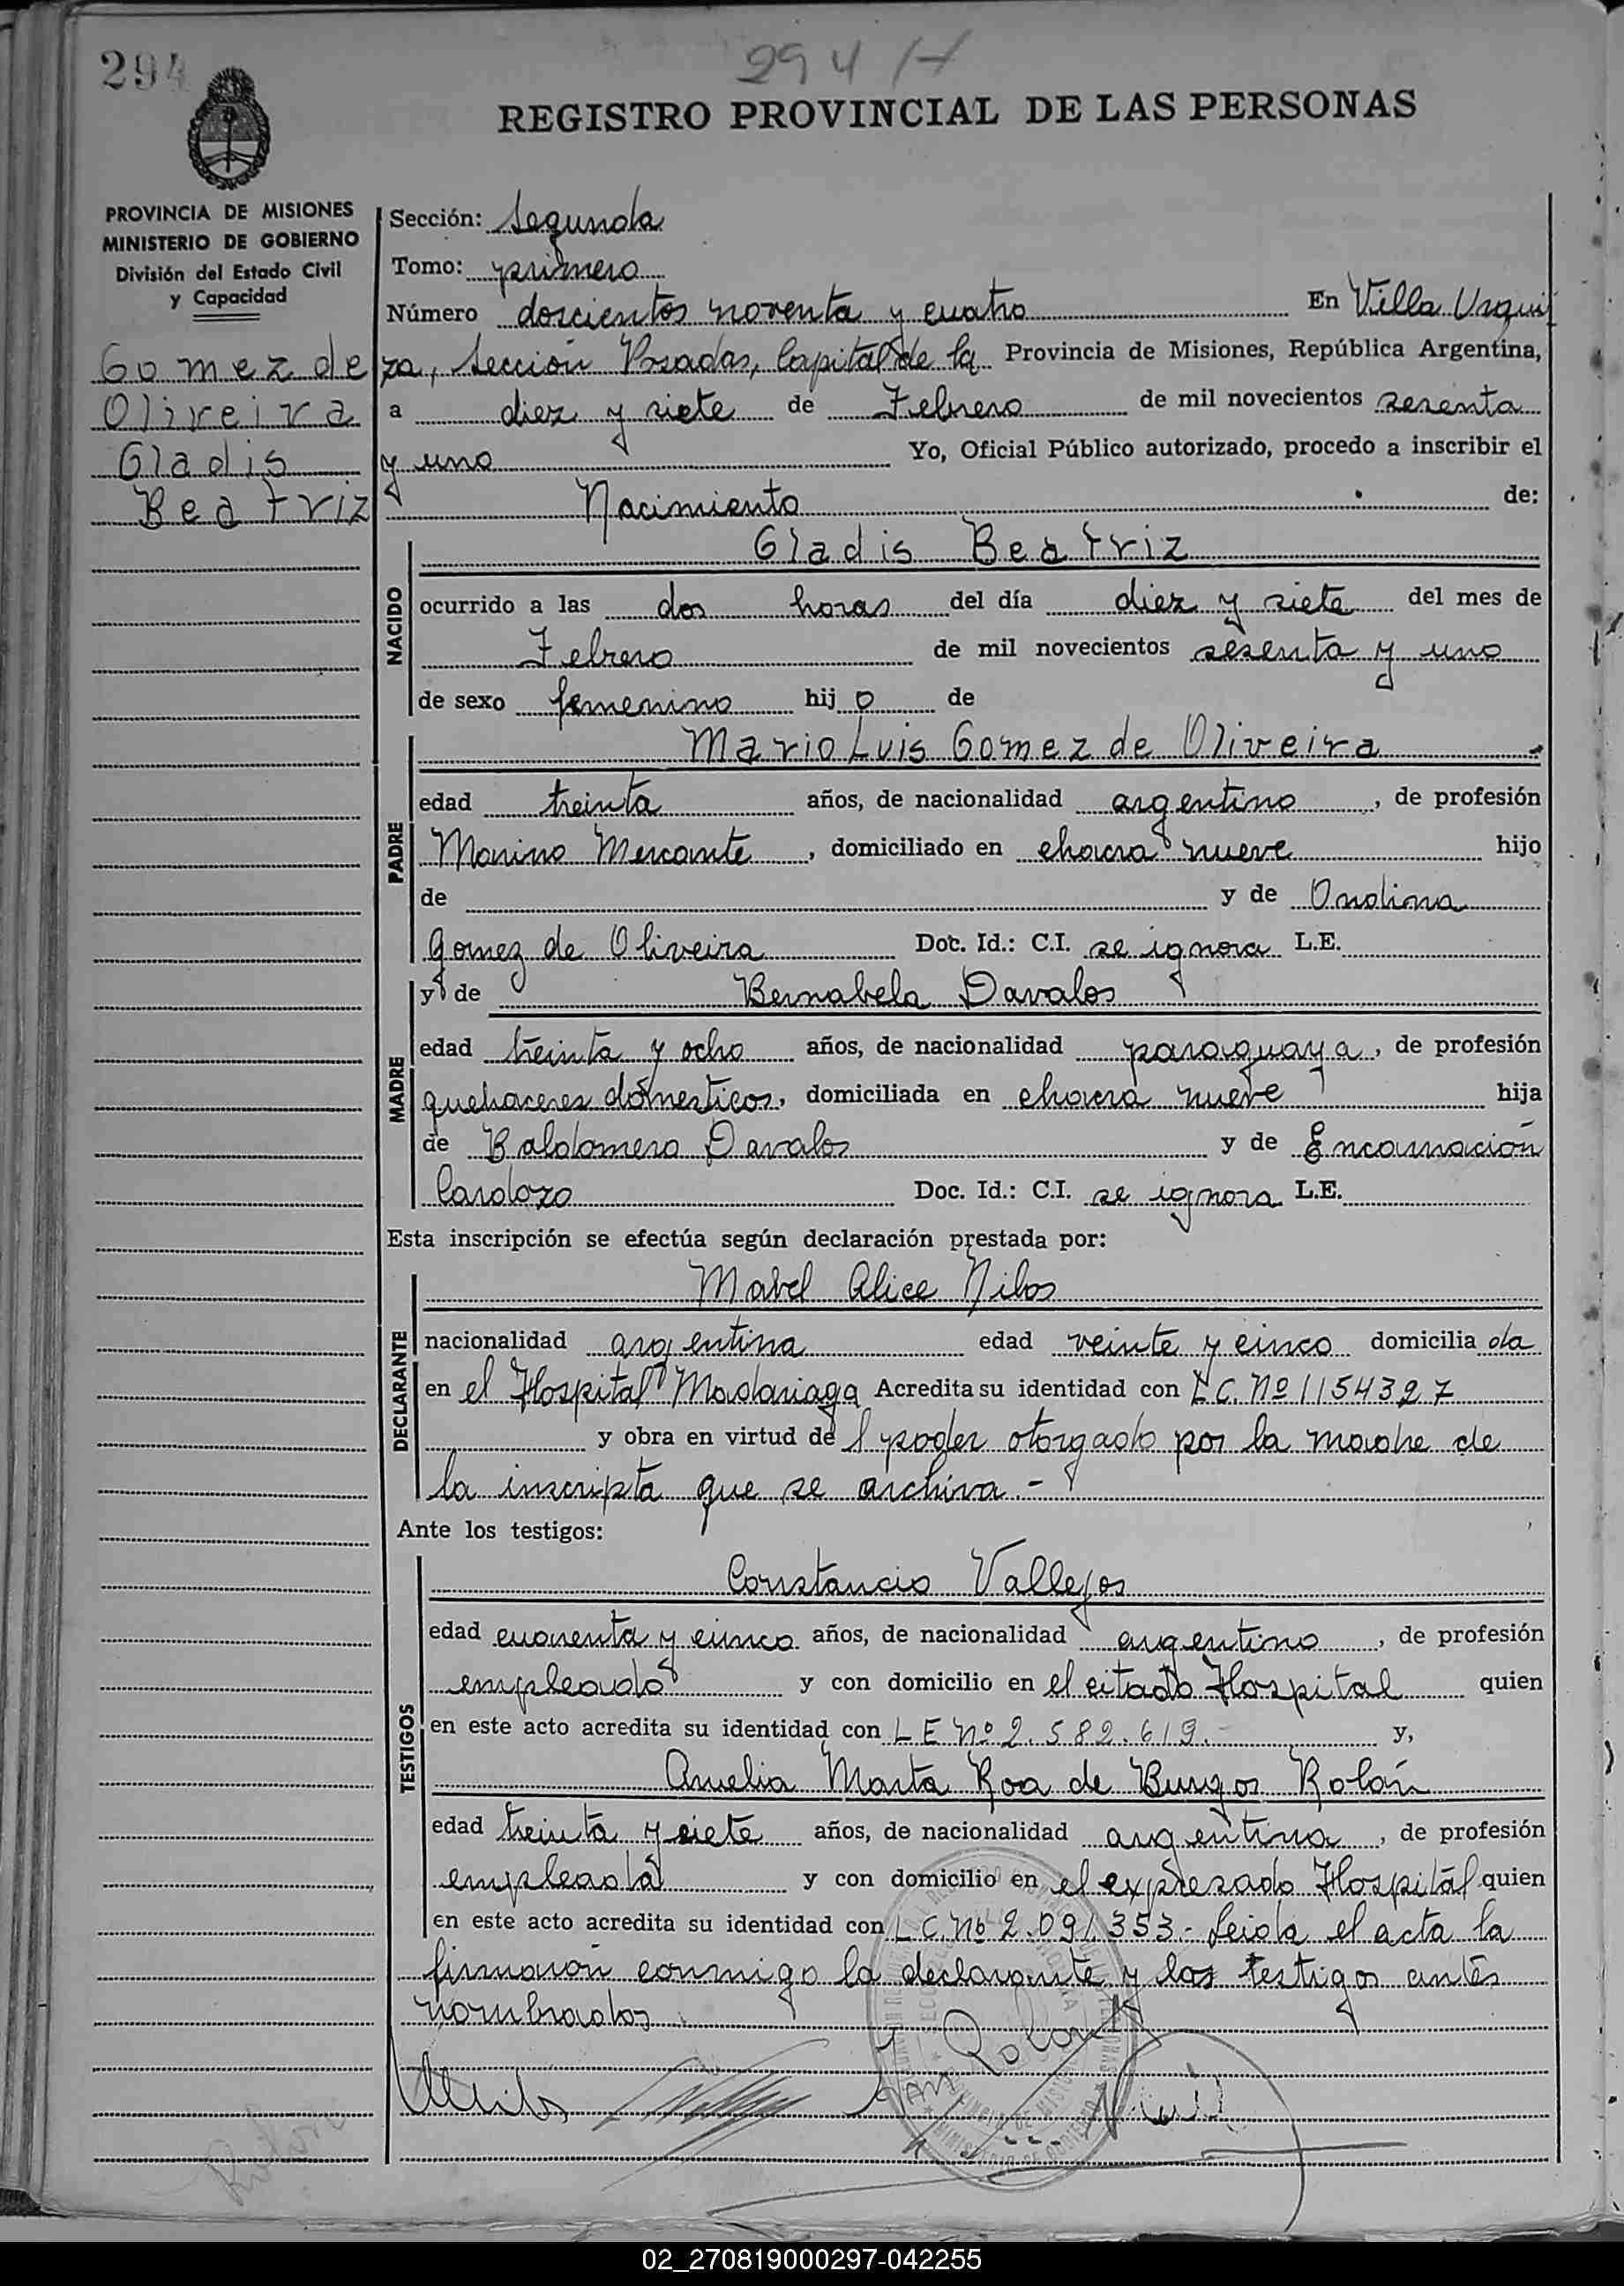 294
294 H
REGISTRO PROVINCIAL DE LAS PERSONAS
PROVINCIA DE MISIONES
MINISTERIO DE GOBIERNO
División del Estado Civil
y Capacidad
Gomez de
Oliveira
Gladis
Beatriz
Sección: Segunda
Tomo: primero
Número doscientos noventa y cuatro En Villa Urqui
za, Sección Posadas, Capital de la Provincia de Misiones, República Argentina,
a diez y siete de Febrero de mil novecientos sesenta
y uno Yo, Oficial Público autorizado, procedo a inscribir el
Nacimiento de:
NACIDO
Gladis Beatriz
ocurrido a las dos horas del día diez y siete del mes de
Febrero de mil novecientos sesenta y uno
de sexo femenino hij o de
PADRE
Mario Luis Gomez de Oliveira
edad treinta años, de nacionalidad argentino, de profesión
Marino Mercante, domiciliado en chacra nueve hijo
de y de Ondina
Gomez de Oliveira Doc. Id.: C.I. se ignora L.E.
MADRE
y de Bernabela Davalos
edad treinta y ocho años, de nacionalidad paraguaya, de profesión
quehaceres domesticos, domiciliada en chacra nueve hija
de Baldomero Davalos y de Encarnación
Cardozo Doc. Id.: C.I. se ignora L.E.
Esta inscripción se efectúa según declaración prestada por:
DECLARANTE
Mabel Alice Nilos
nacionalidad argentina edad veinte y cinco domicilia da
en el Hospital Madariaga Acredita su identidad con L.C. Nº 1154327
y obra en virtud de l poder otorgado por la madre de
la inscripta que se archiva.-
Ante los testigos:
TESTIGOS
Constancio Vallejos
edad cuarenta y cinco años, de nacionalidad argentino, de profesión
empleado y con domicilio en el citado Hospital quien
en este acto acredita su identidad con L E Nº 2.582.619.- y,
Amelia Marta Roa de Burgos Rolán
edad treinta y siete años, de nacionalidad argentina, de profesión
empleada y con domicilio en el expresado Hospital quien
en este acto acredita su identidad con L C. Nº 2.091.353.- Leida el acta la
firmaron conmigo la declarante y los testigos antes
nombrados.
02_270819000297-042255